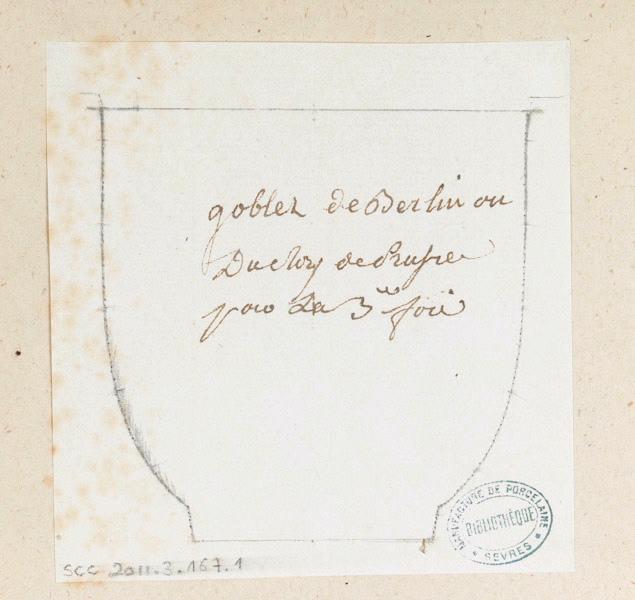 goblet de Berlin ou
Du Roy de Prusse
pour La 3me fois
MANUFACTURE DE PORCELAINE
BIBLIOTHÈQUE
* SEVRES *
SCC 2011.3.167.1